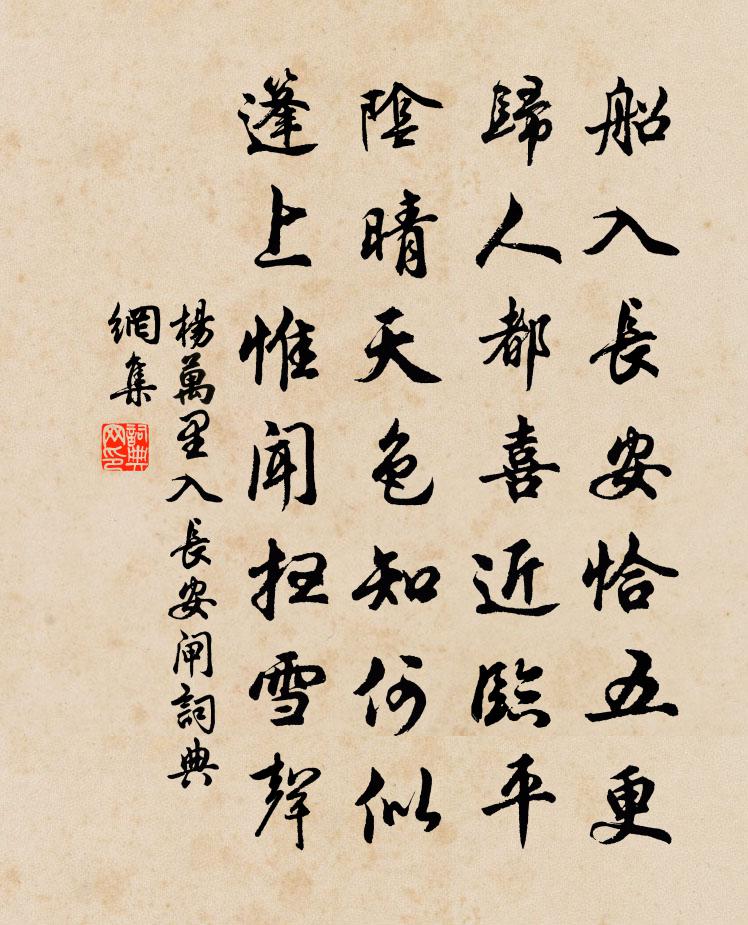 船入長安恰五更
歸人都喜近臨平
陰晴天色知何似
蓬上惟聞掃雪聲
楊萬里入長安閘詞典
網集
詞典
网印